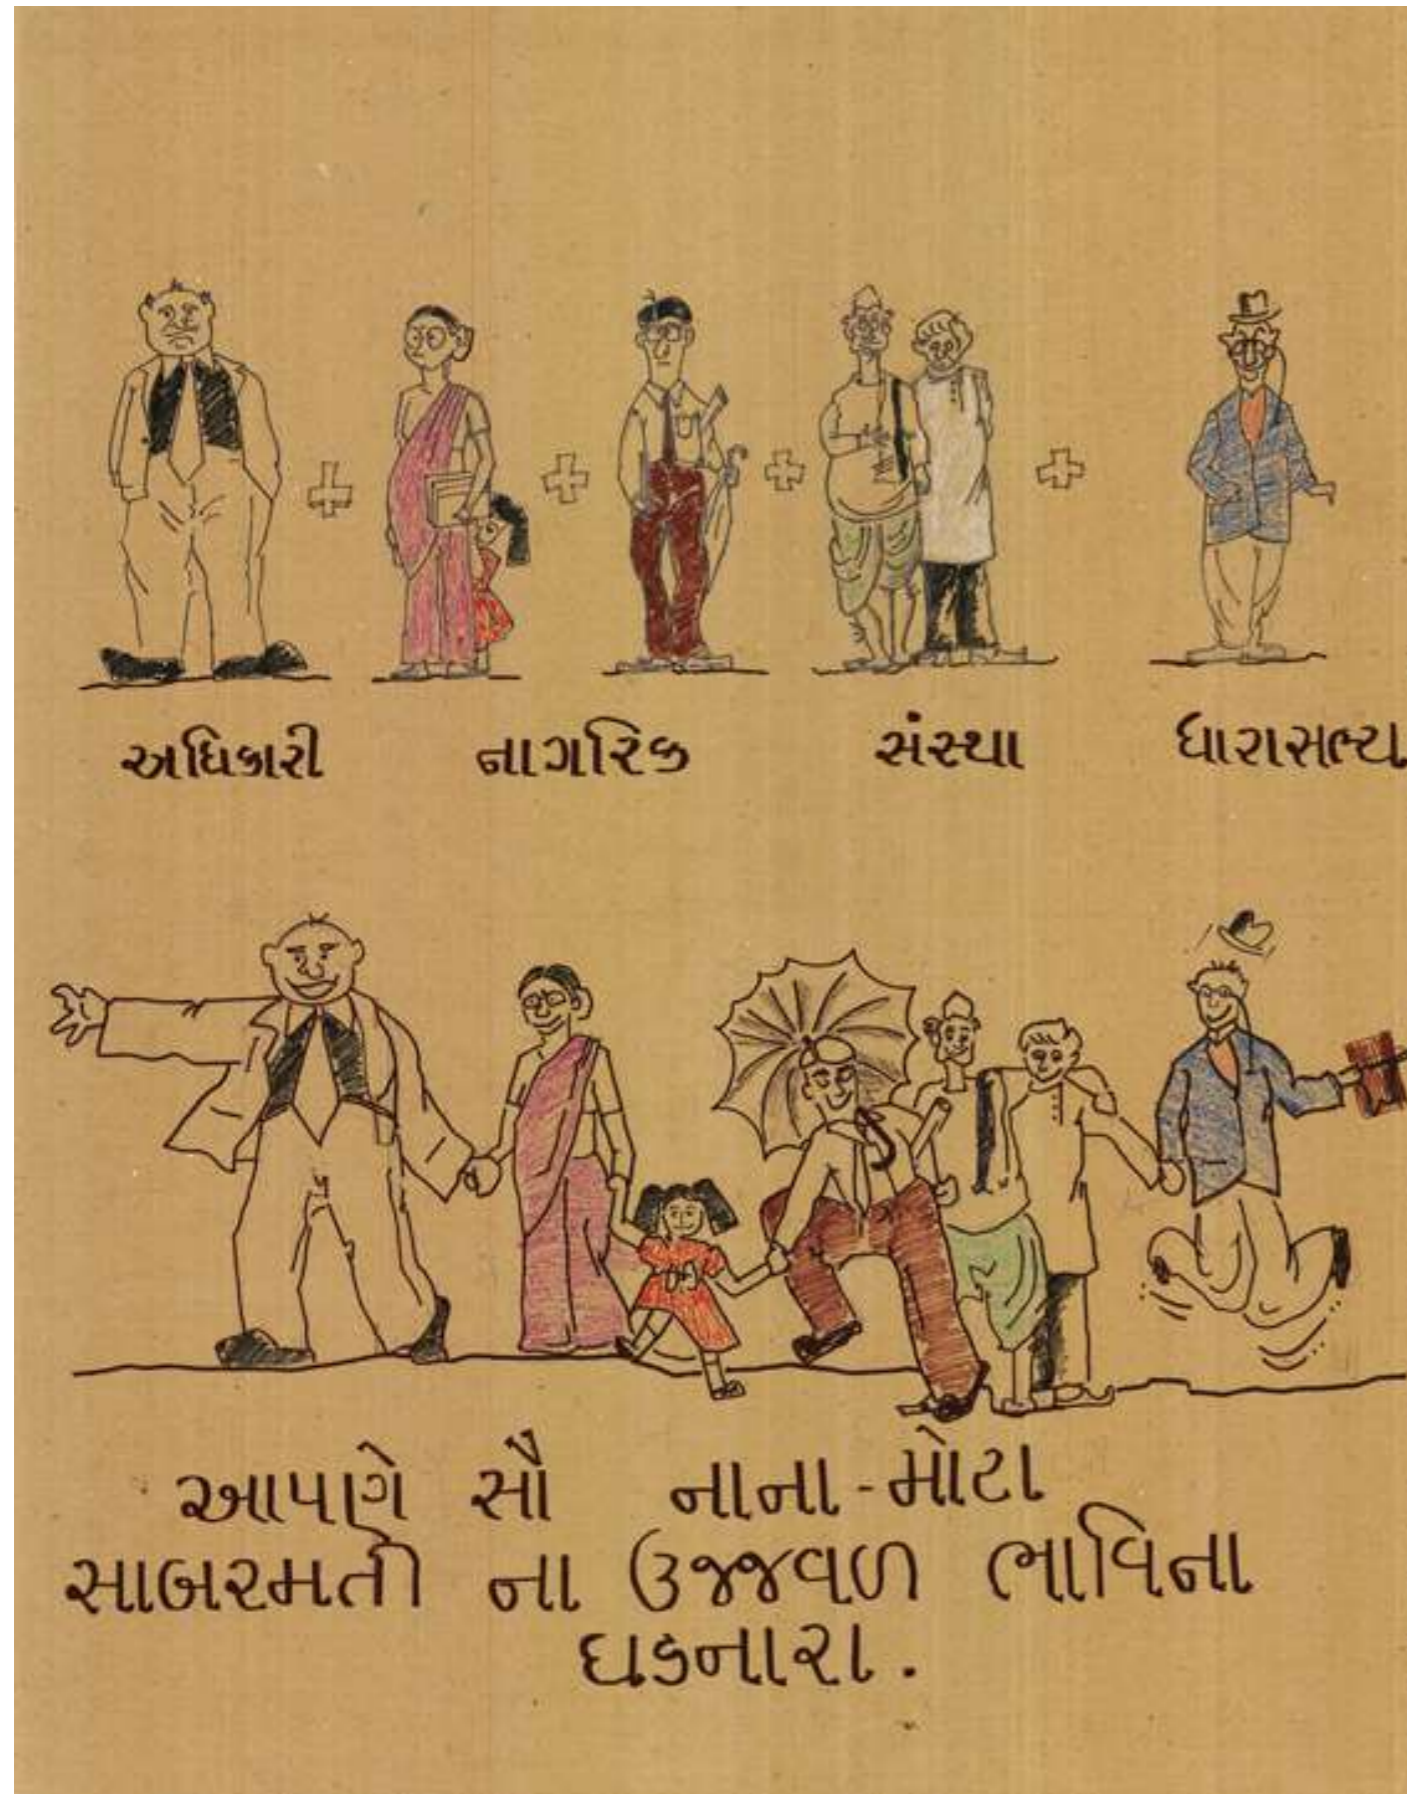 અધિકારી નાગરિક સંસ્થા ધારાસભ્ય
આપણે સૌ નાના-મોટા
સાબરમતી ના ઉજ્જવળ ભાવિના
ઘડનારા.